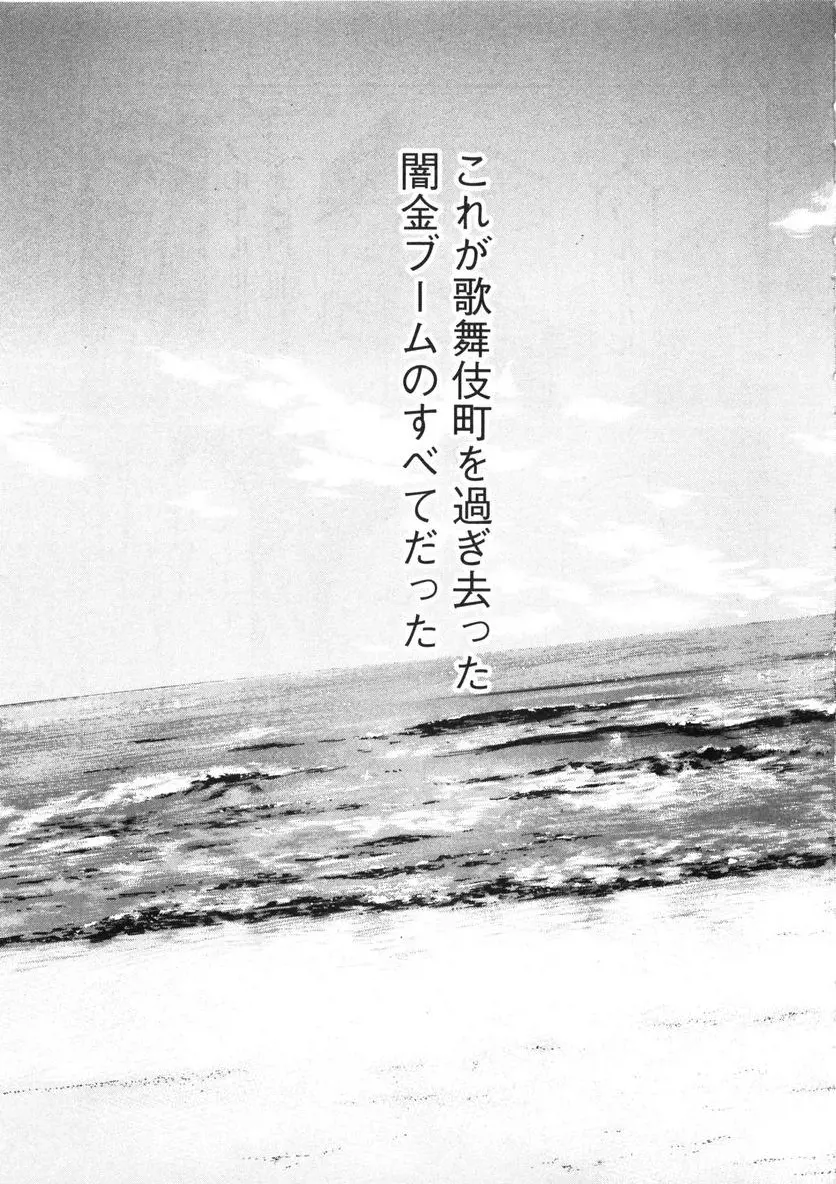 これが歌舞伎町を過ぎ去った
闇金ブームのすべてだった